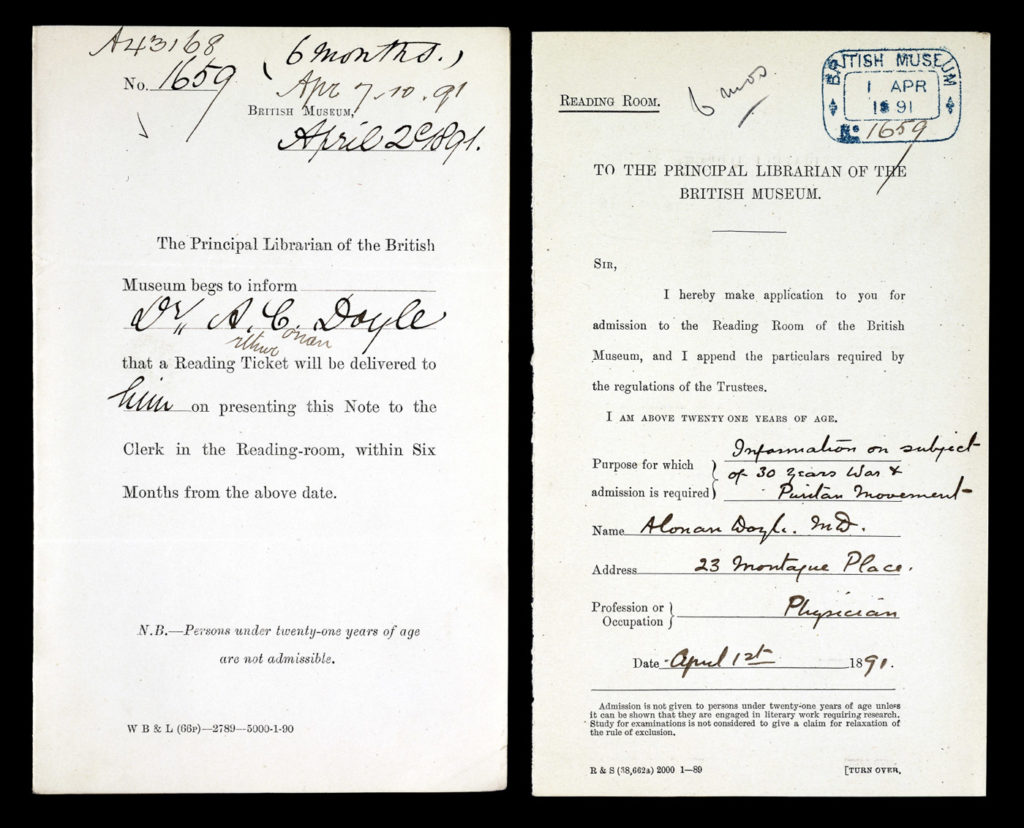 A43168
(6 months.)
No. 1659
Apr 7.10.91
BRITISH MUSEUM,
April 2 1891.
The Principal Librarian of the British
Museum begs to inform
Dr. A. C. Doyle
rthur onan
that a Reading Ticket will be delivered to
him on presenting this Note to the
Clerk in the Reading-room, within Six
Months from the above date.
N.B.—Persons under twenty-one years of age
are not admissible.
W B & L (66P)—2789—5000-1-90
READING ROOM.
6 mos
BRITISH MUSEUM
1 APR
1891
No. 1659
TO THE PRINCIPAL LIBRARIAN OF THE
BRITISH MUSEUM.
SIR,
I hereby make application to you for
admission to the Reading Room of the British
Museum, and I append the particulars required by
the regulations of the Trustees.
I AM ABOVE TWENTY ONE YEARS OF AGE.
Purpose for which admission is required
Information on subject
of 30 Years War &
Puritan Movement
Name A Conan Doyle. M.D.
Address 23 Montague Place.
Profession or Occupation Physician
Date April 1st 1891.
Admission is not given to persons under twenty-one years of age unless
it can be shown that they are engaged in literary work requiring research.
Study for examinations is not considered to give a claim for relaxation of
the rule of exclusion.
R & S (38,662a) 2000 1—89
[TURN OVER.